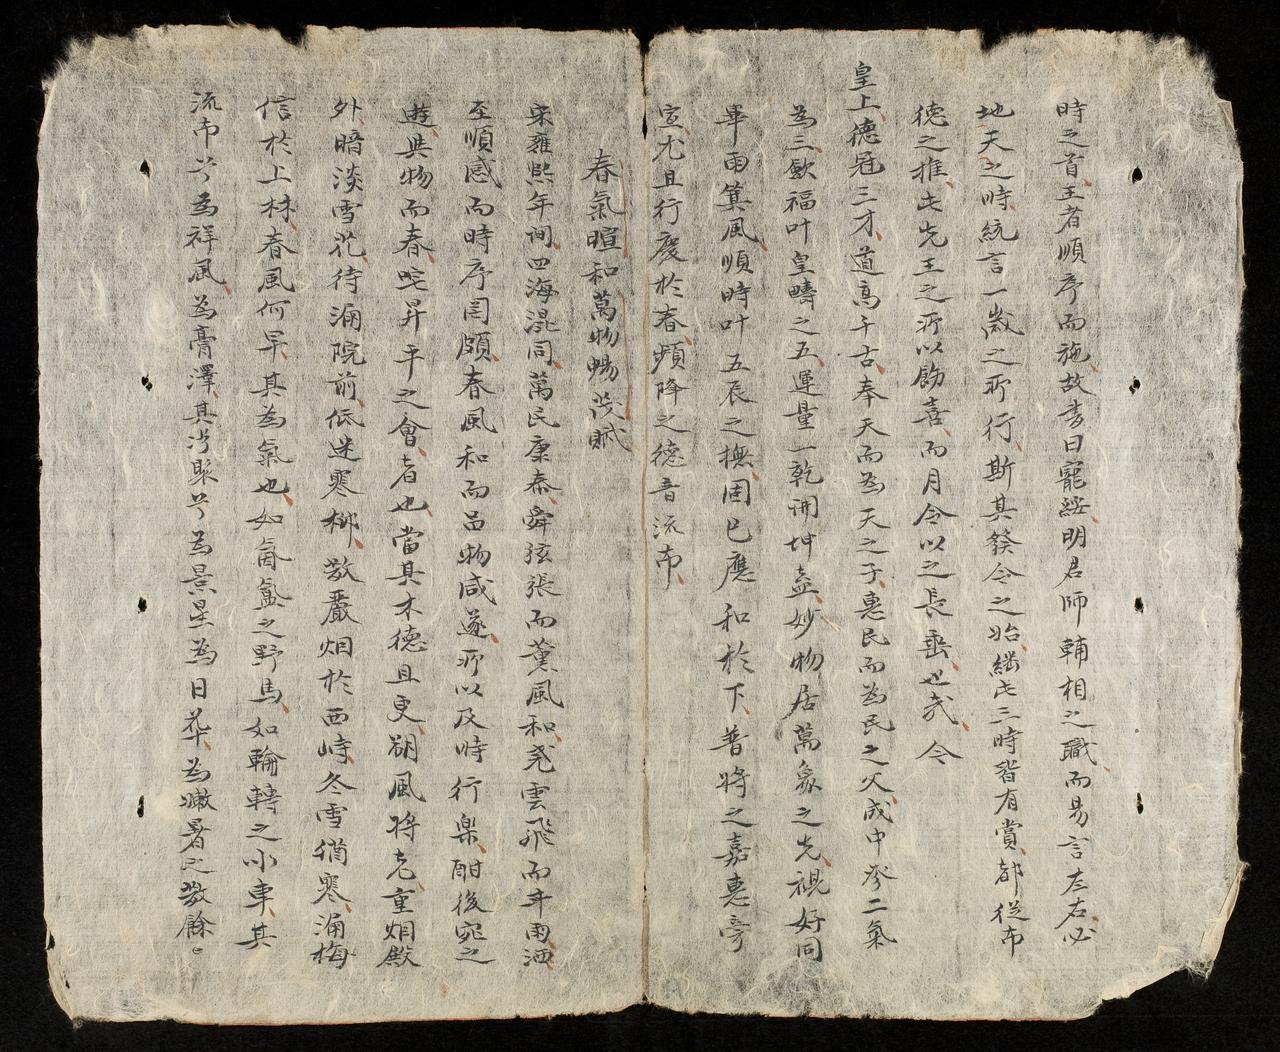 時之首王者順序而施故書曰寵綏明君師輔相之職而易言左右必
地天之時統言一歲之所行斯其發令之始継此三時皆有賞都從布
德之推此先王之所以飭喜而月令以之長垂也哉今
皇上德冠三才道高千古奉天而為天之子惠民而為民之父成中參二氣
為三歛福叶皇疇之五運量一乾開坤盍妙物居萬象之先視好同
畢雨箕風順時叶五辰之撫固已應和於下普將之嘉惠旁
宣尤且行慶於春頻降之德音流布
春氣暄和萬物暢茂賦
宋雍熙年间四海混同萬民康泰舜弦張而薰風和尭雲飛而年雨洒
至順感而時序罔頗春風和而品物咸遂所以及時行樂酣後宛之
遊與物而春咤昇平之會者也當其木德且更朔風將老重烟殿
外暗淡雪花待漏院前低迷寒柳散嚴烟於西峙冬雪猶寒漏梅
信於上林春風何早其為氣也如氤氳之野馬如輪轉之小車其
流布兮為祥風為膏澤其沕聚兮為景星為日華為嫩暑之散餘